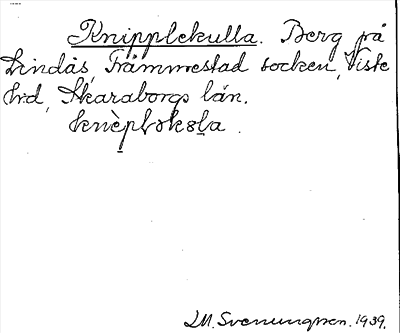 Knipplekulla. Berg på
Lindås, Främmestad socken, Viste
hd, Skaraborgs län.
knèplɘkɞl̲a.
LM. Svenungsson. 1939.